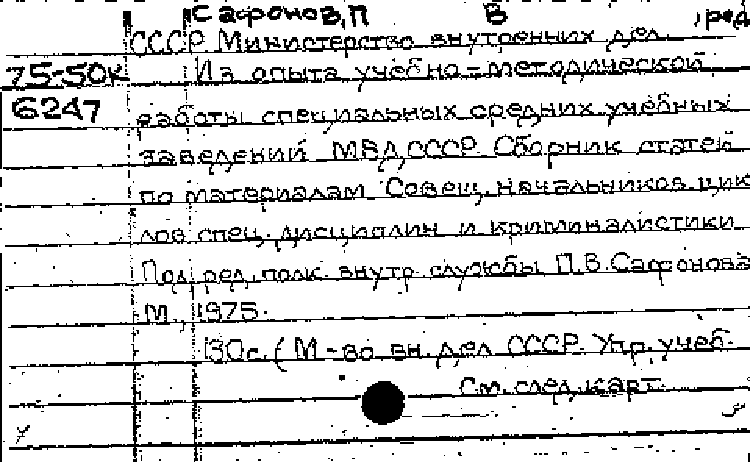 Сафонов, П В , ред
СССР Министерство внутренних дел.
75-50к Из опыта учебно-методической
6247 работы специальных средних учебных
заведений МВД СССР. Сборник статей
по материалам Совещ. начальников цик
лов спец. дисциплин и криминалистики
Под ред. полк. внутр. службы П.В. Сафонова
М., 1975.
130с. (М-во вн. дел СССР. Упр. учеб.
См. след. карт.